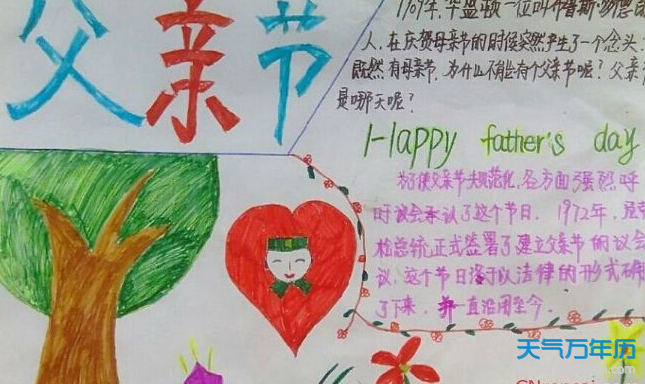 父亲节
1909年,华盛顿一位叫布鲁斯·多德的
人,在庆贺母亲节的时候突然产生了一个念头:
既然有母亲节,为什么不能有个父亲节呢?父亲节
是哪天呢?
Happy father's day
为了使父亲节规范化,各方面强烈呼
吁议会承认了这个节日。1972年,尼克
松总统正式签署了建立父亲节的议会
议,这个节日终于以法律的形式确
了下来,并一直沿用至今。
天气万年历